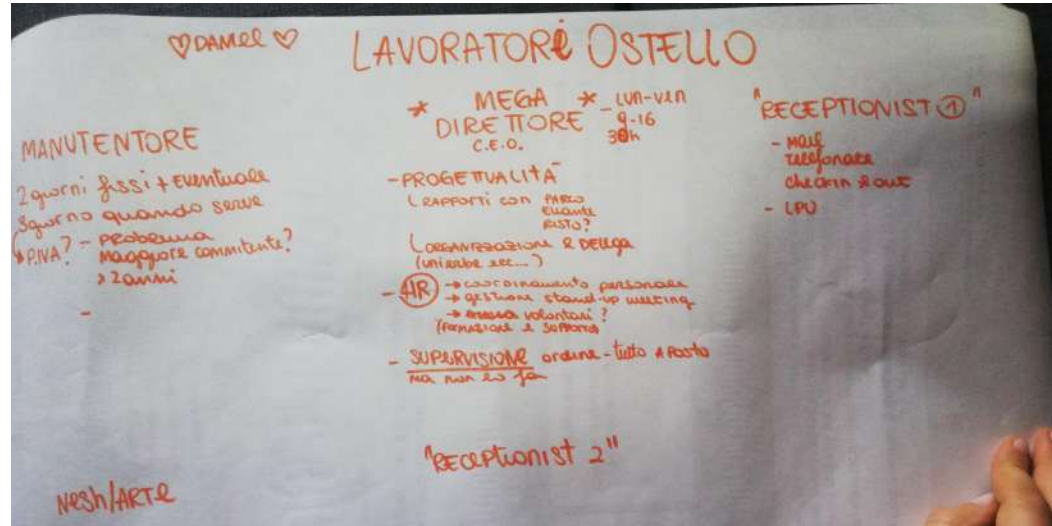 ♡ DANIEL ♡
LAVORATORI OSTELLO
MANUTENTORE
2 giorni fissi + eventuale
3 giorno quando serve
P.IVA? - problema
maggiore committente?
> 2 anni
-
* MEGA *
DIRETTORE
C.E.O.
- LUN-VEN
9-16
30h
- PROGETTUALITÀ
(RAPPORTI con PARCO
RISTO?
(ORGANIZZAZIONE e DELEGA
- HR → coordinamento personale
→ gestione stand-up meeting
→ volontari?
(formazione e supporto
- SUPERVISIONE ordine - tutto a posto
ma non lo fa
"RECEPTIONIST ①"
- mail
telefonate
checkin e out
- LPU
"RECEPTIONIST 2"
Nesh/ARTE